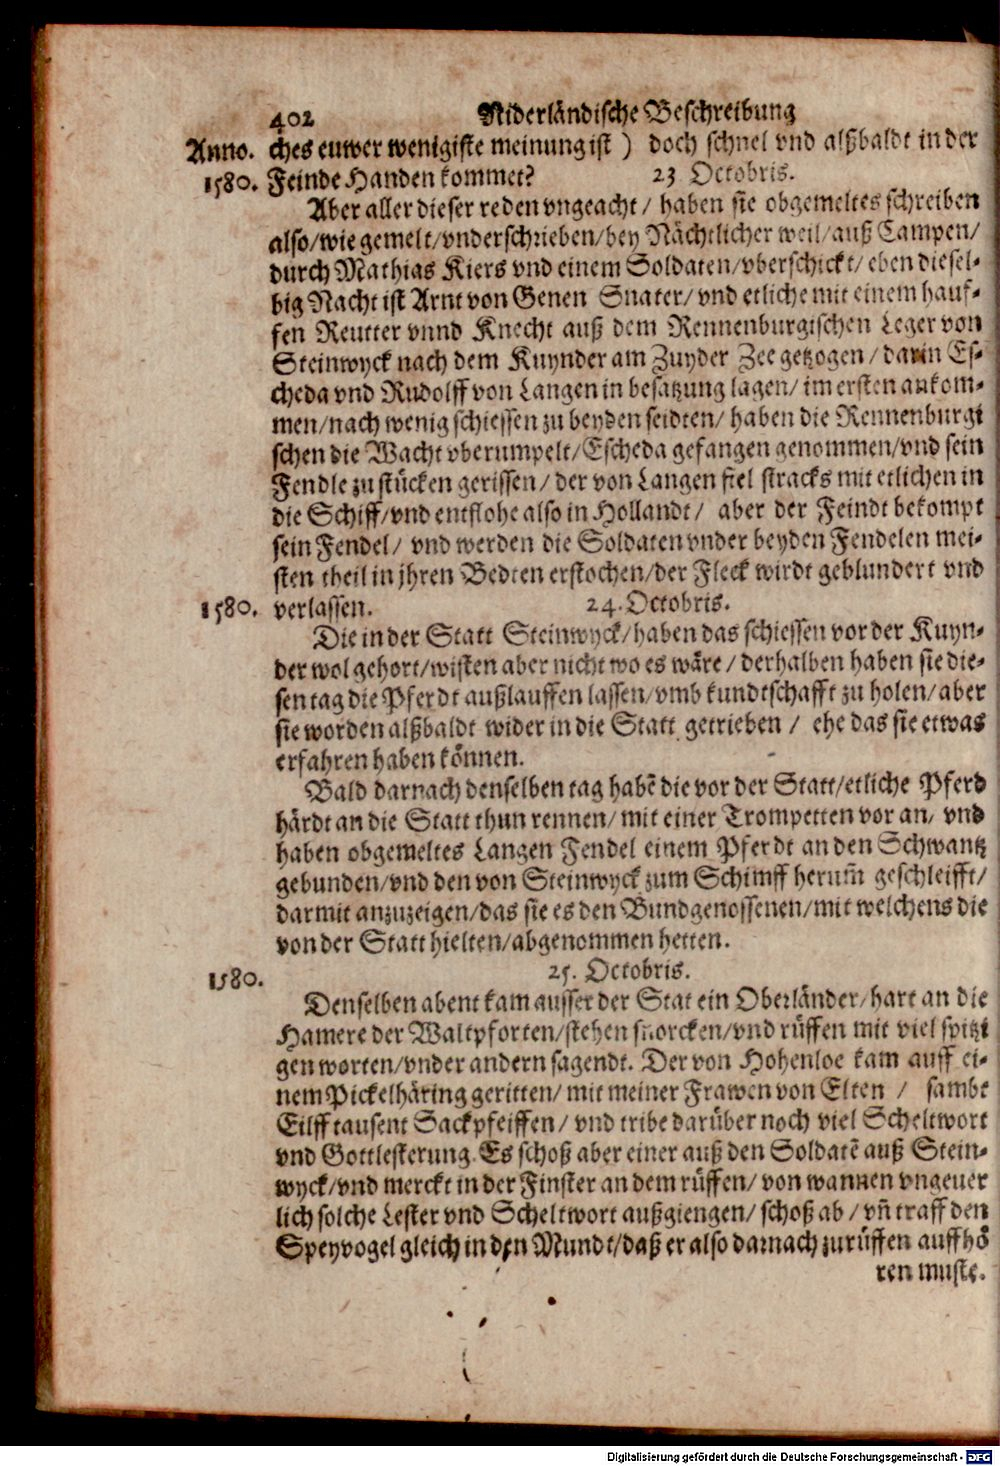 402 Niderländische Beschreibung
Anno. ches euwer wenigiste meinung ist ) doch schnel vnd alßbaldt in der
1580. Feinde Handen kommet? 23 Octobris.
Aber aller dieser reden vngeacht / haben sie obgemeltes schreiben
also/wie gemelt/vnderschrieben/bey Nächtlicher weil/auß Campen/
durch Mathias Kiers vnd einem Soldaten/vberschickt/eben diesel-
big Nacht ist Arnt von Genen Snater/vnd etliche mit einem hauf-
fen Reutter vnnd Knecht auß dem Rennenburgischen Leger von
Steinwyck nach dem Kuynder am Zuyder Zee getzogen/darin Es-
cheda vnd Rudolff von Langen in besatzung lagen/im ersten ankom-
men/nach wenig schiessen zu beyden seidten/haben die Rennenburgi
schen die Wacht vberumpelt/Escheda gefangen genommen/vnd sein
Fendle zu stücken gerissen/der von Langen fiel stracks mit etlichen in
die Schiff/vnd entflohe also in Hollandt/ aber der Feindt bekompt
sein Fendel/ vnd werden die Soldaten vnder beyden Fendelen mei-
sten theil in jhren Bedten erstochen/der Fleck wirdt geblundert vnd
1580. verlassen. 24. Octobris.
Die in der Statt Steinwyck/haben das schiessen vor der Kuyn-
der wol gehort/wisten aber nicht wo es wäre/derhalben haben sie die-
sen tag die Pferdt außlauffen lassen/vmb kundtschafft zu holen/aber
sie worden alßbaldt wider in die Statt getrieben / ehe das sie etwas
erfahren haben können.
Bald darnach denselben tag habẽ die vor der Statt/etliche Pferd
härdt an die Statt thun rennen/mit einer Trompetten vor an/ vnd
haben obgemeltes Langen Fendel einem Pferdt an den Schwantz
gebunden/vnd den von Steinwyck zum Schimff herum̃ geschleifft/
darmit anzuzeigen/das sie es den Bundgenossenen/mit welchens die
von der Statt hielten/abgenommen hetten.
1580. 25. Octobris.
Denselben abent kam ausser der Stat ein Oberländer/hart an die
Hamere der Waltpforten/stehen snorcken/vnd rüffen mit viel spitzi
gen worten/vnder andern sagendt. Der von Hohenloe kam auff ei-
nem Pickelhäring geritten/mit meiner Frawen von Elten / sambt
Eilff tausent Sackpfeiffen/ vnd tribe darüber noch viel Scheltwort
vnd Gottlesterung. Es schoß aber einer auß den Soldatẽ auß Stein-
wyck/vnd merckt in der Finster an dem rüffen/von wannen vngeuer
lich solche Lester vnd Scheltwort außgiengen/schoß ab/vñ traff den
Speyvogel gleich in den Mundt/daß er also darnach zurüffen auffhö
ren muste.
Digitalisierung gefördert durch die Deutsche Forschungsgemeinschaft - DFG